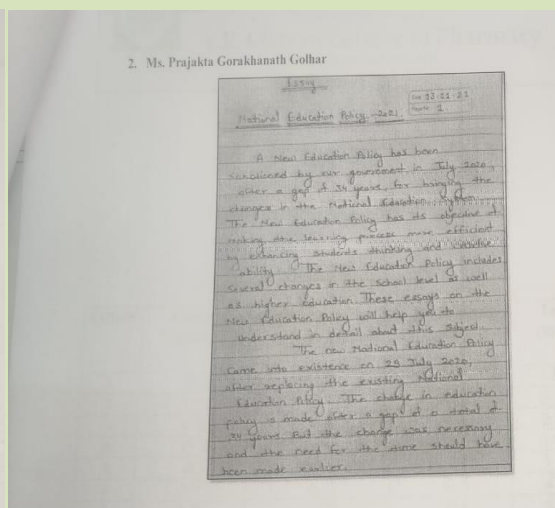 2. Ms. Prajakta Gorakhanath Golhar
Essay
Date 12-11-21
Page No. 1
National Education Policy - 2021
A New Education Policy has been
sanctioned by our government in July 2020,
after a gap of 34 years, for bringing the
changes in the National Education System.
The New Education Policy has its objective of
making the learning process more efficient
by enhancing students thinking and creative
ability. The New Education Policy includes
several changes in the school level as well
as higher education. These essays on the
New Education Policy will help you to
understand in detail about this subject.
The new National Education Policy
came into existence on 29 July 2020,
after replacing the existing National
Education Policy. The change in education
policy is made after a gap of a total of
34 years. But the change was necessary
and the need for the time should have
been made earlier.